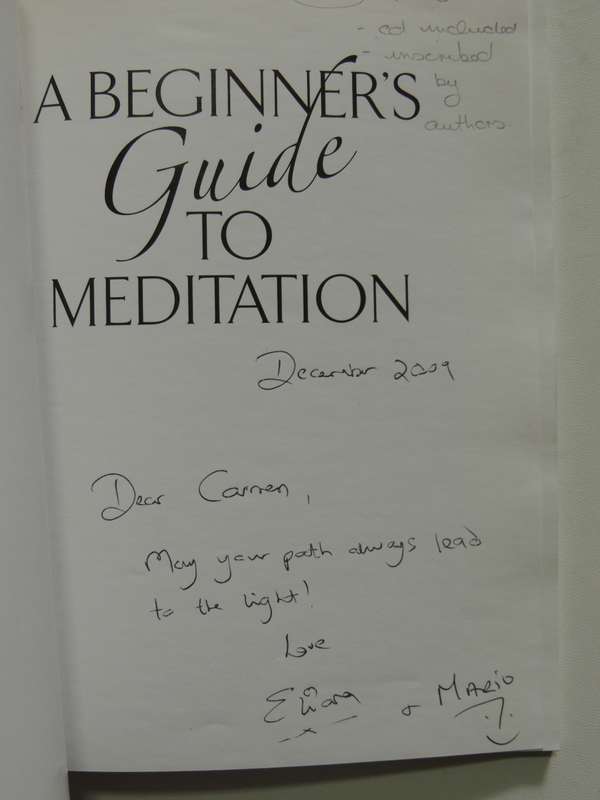 - cd included
- inscribed
by
authors.
A BEGINNER'S
Guide
TO
MEDITATION
December 2009
Dear Carmen,
May your path always lead
to the light!
Love
& MARIO